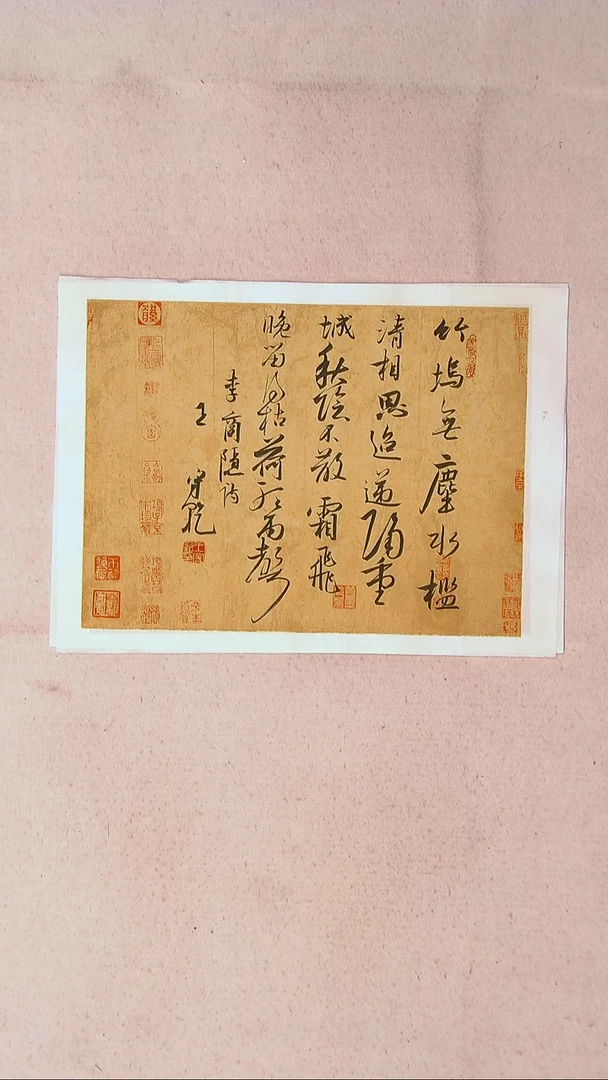 竹塢無塵水檻
清相思迢遞隔重
城秋陰不散霜飛
晚留得枯荷聽雨聲
李商隱詩
王